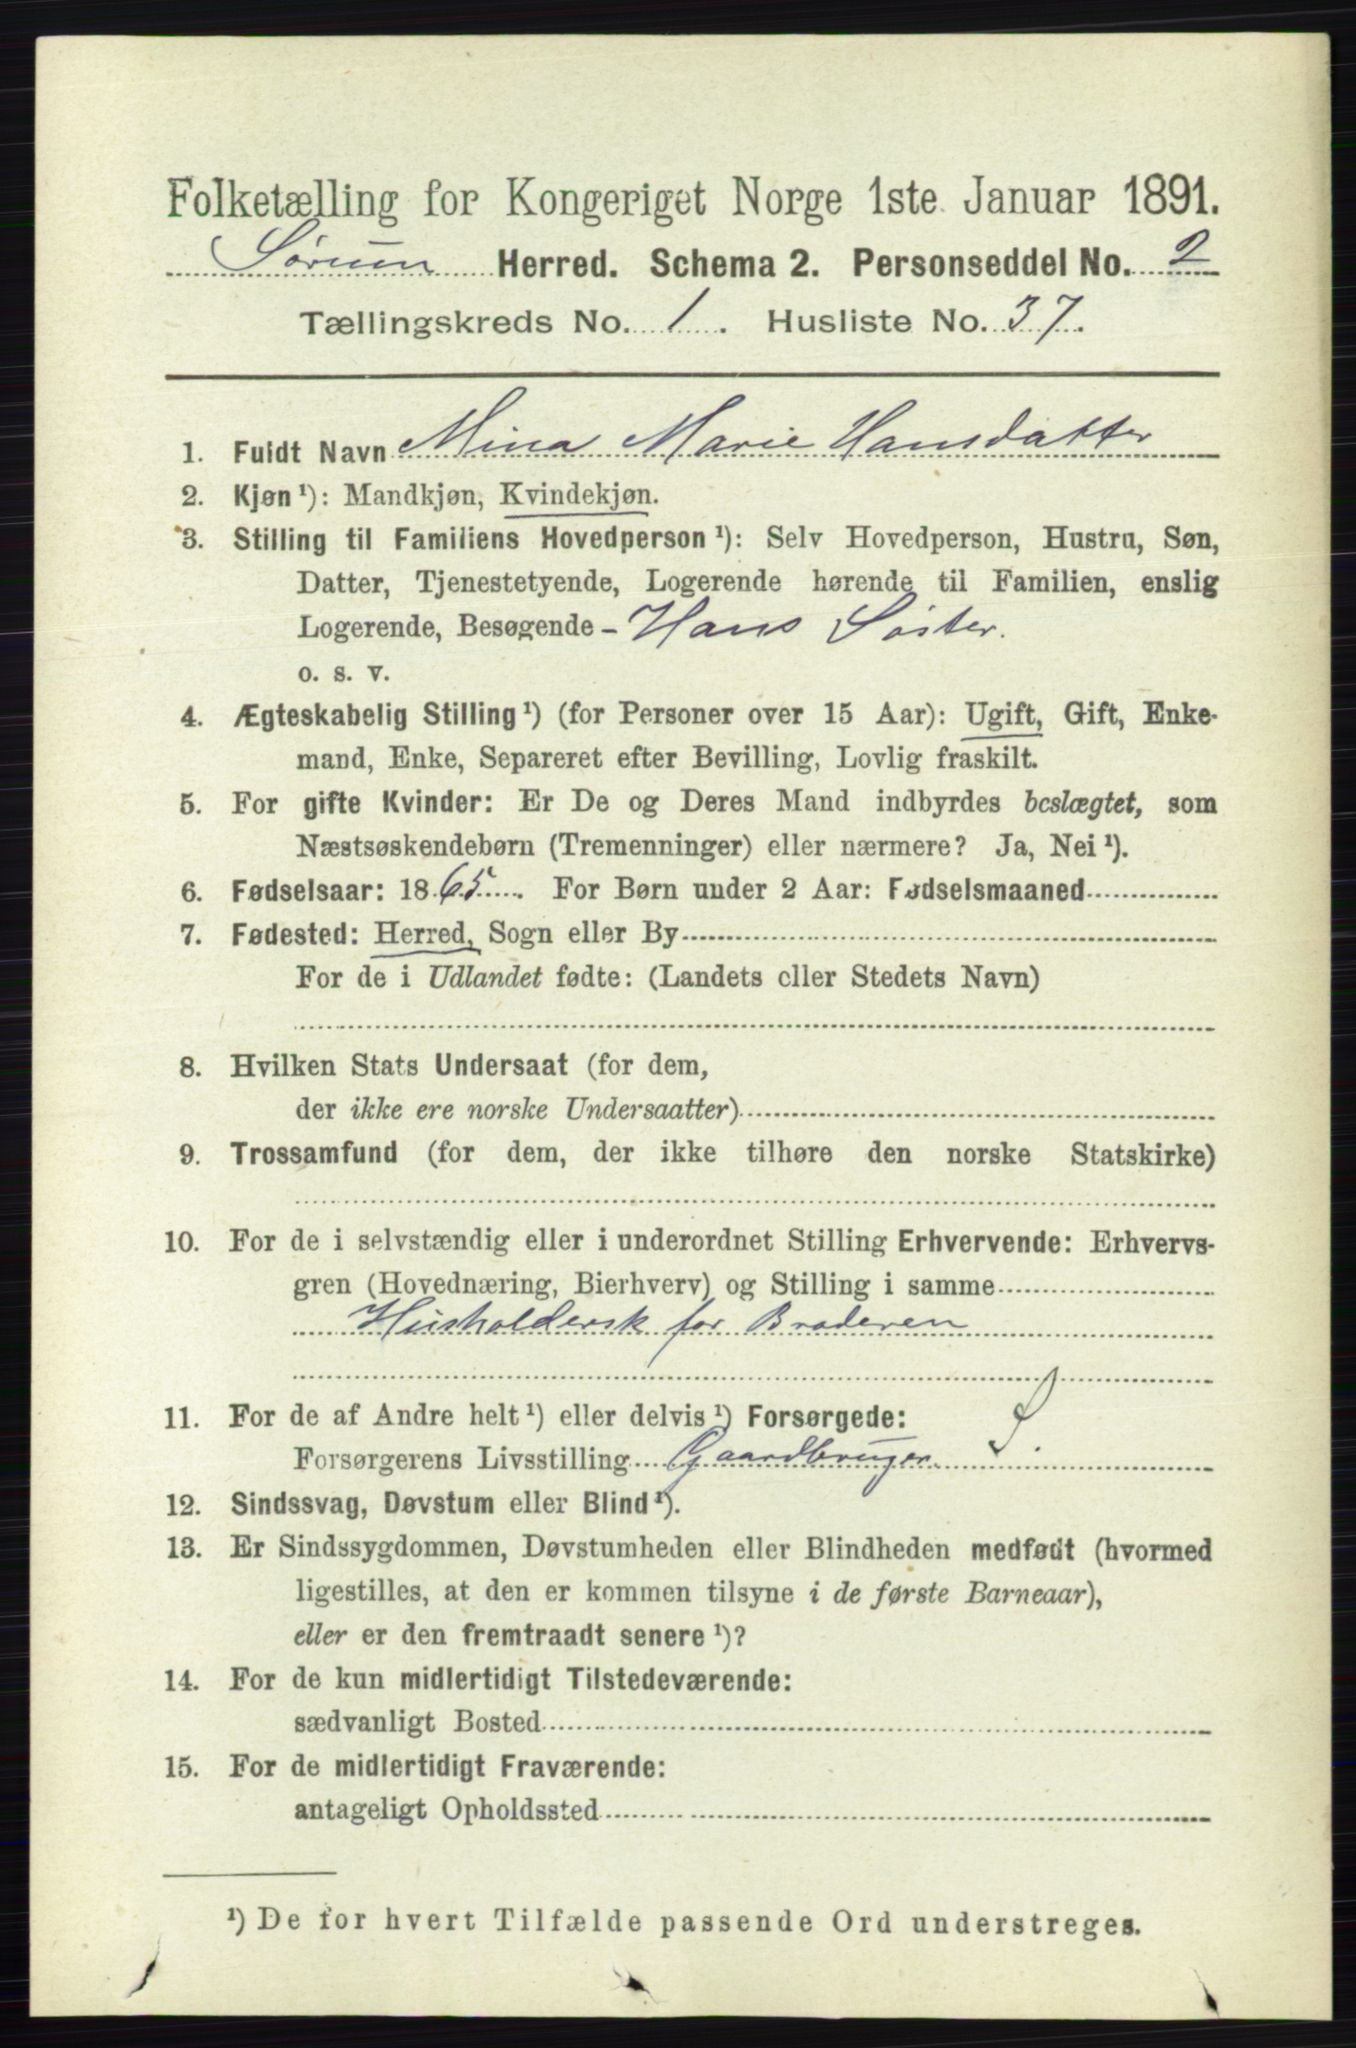 Folketælling for Kongeriget Norge 1ste Januar 1891.
Sørum Herred. Schema 2. Personseddel No. 2
Tællingskreds No. 1. Husliste No. 37.
1. Fuldt Navn Mina Marie Hansdatter
2. Kjøn ¹): Mandkjøn, Kvindekjøn.
3. Stilling til Familiens Hovedperson ¹): Selv Hovedperson, Hustru, Søn,
Datter, Tjenestetyende, Logerende hørende til Familien, enslig
Logerende, Besøgende - Hans Søster.
o. s. v.
4. Ægteskabelig Stilling ¹) (for Personer over 15 Aar): Ugift, Gift, Enke-
mand, Enke, Separeret efter Bevilling, Lovlig fraskilt.
5. For gifte Kvinder: Er De og Deres Mand indbyrdes beslægtet, som
Næstsøskendebørn (Tremenninger) eller nærmere? Ja, Nei ¹).
6. Fødselsaar: 1865. For Børn under 2 Aar: Fødselsmaaned
7. Fødested: Herred, Sogn eller By
For de i Udlandet fødte: (Landets eller Stedets Navn)
8. Hvilken Stats Undersaat (for dem,
der ikke ere norske Undersaatter)
9. Trossamfund (for dem, der ikke tilhøre den norske Statskirke)
10. For de i selvstændig eller i underordnet Stilling Erhvervende: Erhvervs-
gren (Hovednæring, Bierhverv) og Stilling i samme
Husholdersk for Broderen
11. For de af Andre helt ¹) eller delvis ¹) Forsørgede:
Forsørgerens Livsstilling Gaardbruger
12. Sindssvag, Døvstum eller Blind ¹).
13. Er Sindssygdommen, Døvstumheden eller Blindheden medfødt (hvormed
ligestilles, at den er kommen tilsyne i de første Barneaar),
eller er den fremtraadt senere ¹)?
14. For de kun midlertidigt Tilstedeværende:
sædvanligt Bosted
15. For de midlertidigt Fraværende:
antageligt Opholdssted
¹) De for hvert Tilfælde passende Ord understreges.